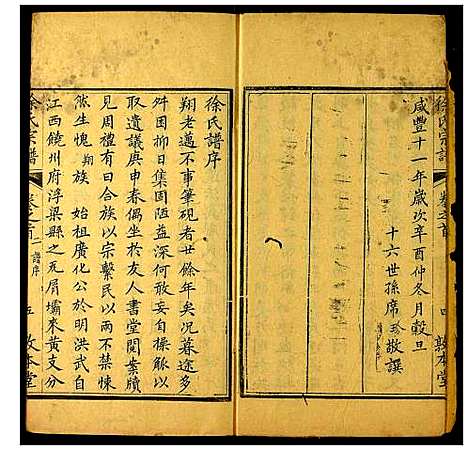 徐氏宗譜
卷之首
四
敦本堂
咸豐十一年歲次辛酉仲冬月穀旦
十六世孫席珍敬譔
徐氏譜序
翔老邁不事筆硯者廿餘年矣况暮途多
舛困抑日集固陋益深何敢妄自操觚以
取遺議庚申春偶坐於友人書堂閱案牘
見周禮有曰合族以宗繫民以兩不禁悚
然生愧翔族始祖廣化公於明洪武自
江西饒州府浮梁縣之瓦屑壩來黃支分
徐氏宗譜
卷之首
一譜序
五
敦本堂